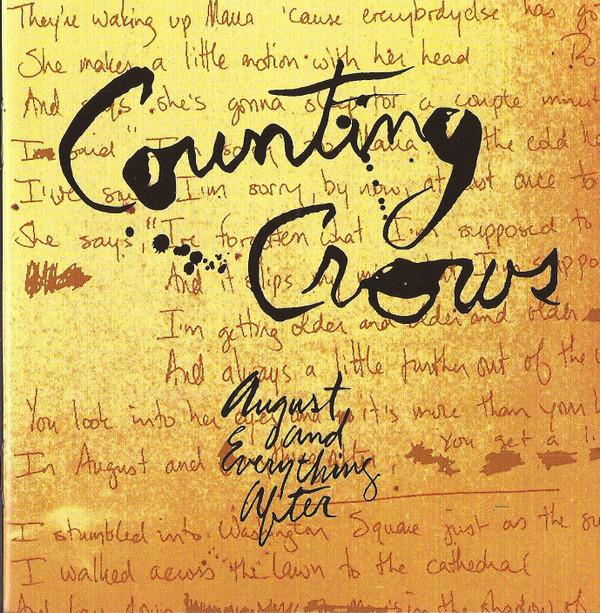 They're waking up Maria 'cause everybody else has go
She makes a little motion with her head
Ro
And says she's gonna for a couple minut
I said the cold
I've I'm sorry, by now, at once to
She says, "I've forgotten what I'm supposed to
And it slips my I'm
I'm getting older and older and older
And always a little further out of the
You look into her eyes it's more than your
In August and
you get a li
I stumbled into Washington Square just as the su
I walked across the lawn to the cathedral
And in the shadow of
Counting
Crows
August
and
Everything
After